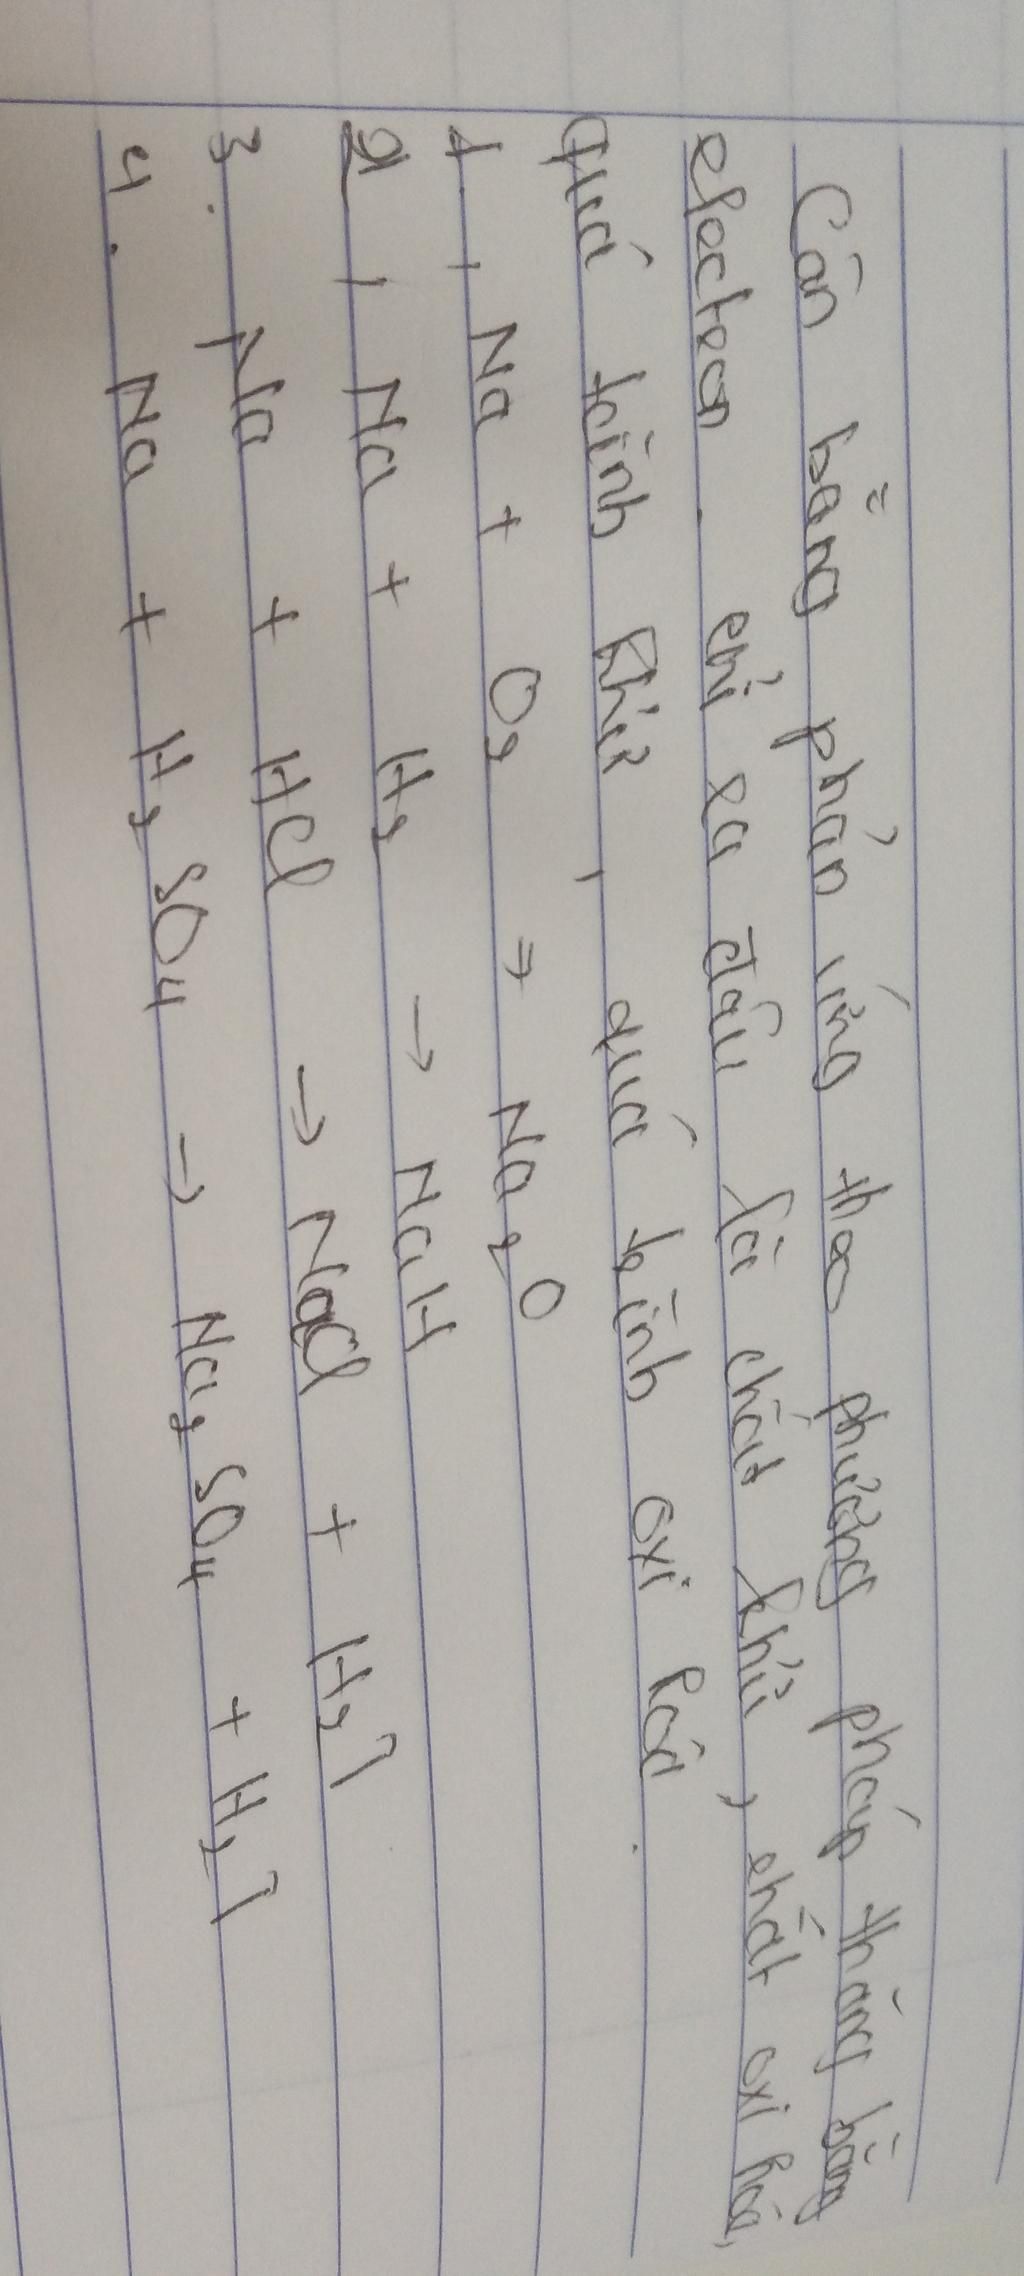 Cân bằng phản ứng theo phương pháp thăng bằng
electron. chỉ ra đâu là chất khử, chất oxi hóa,
quá trình khử, quá trình oxi hóa.
1, Na + O₂ → Na₂O
2, Na + H₂ → NaH
3. Na + HCl → NaCl + H₂↑
4. Na + H₂SO₄ → Na₂SO₄ + H₂↑